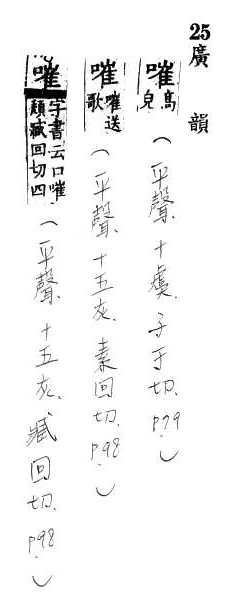 25 廣韻
嗺 高皃（平聲、十虞、子于切、P79）
嗺 嗺送歌（平聲、十五灰、素回切、P98）
嗺 字書云口嗺頹臧回切四（平聲、十五灰、臧回切、P98）